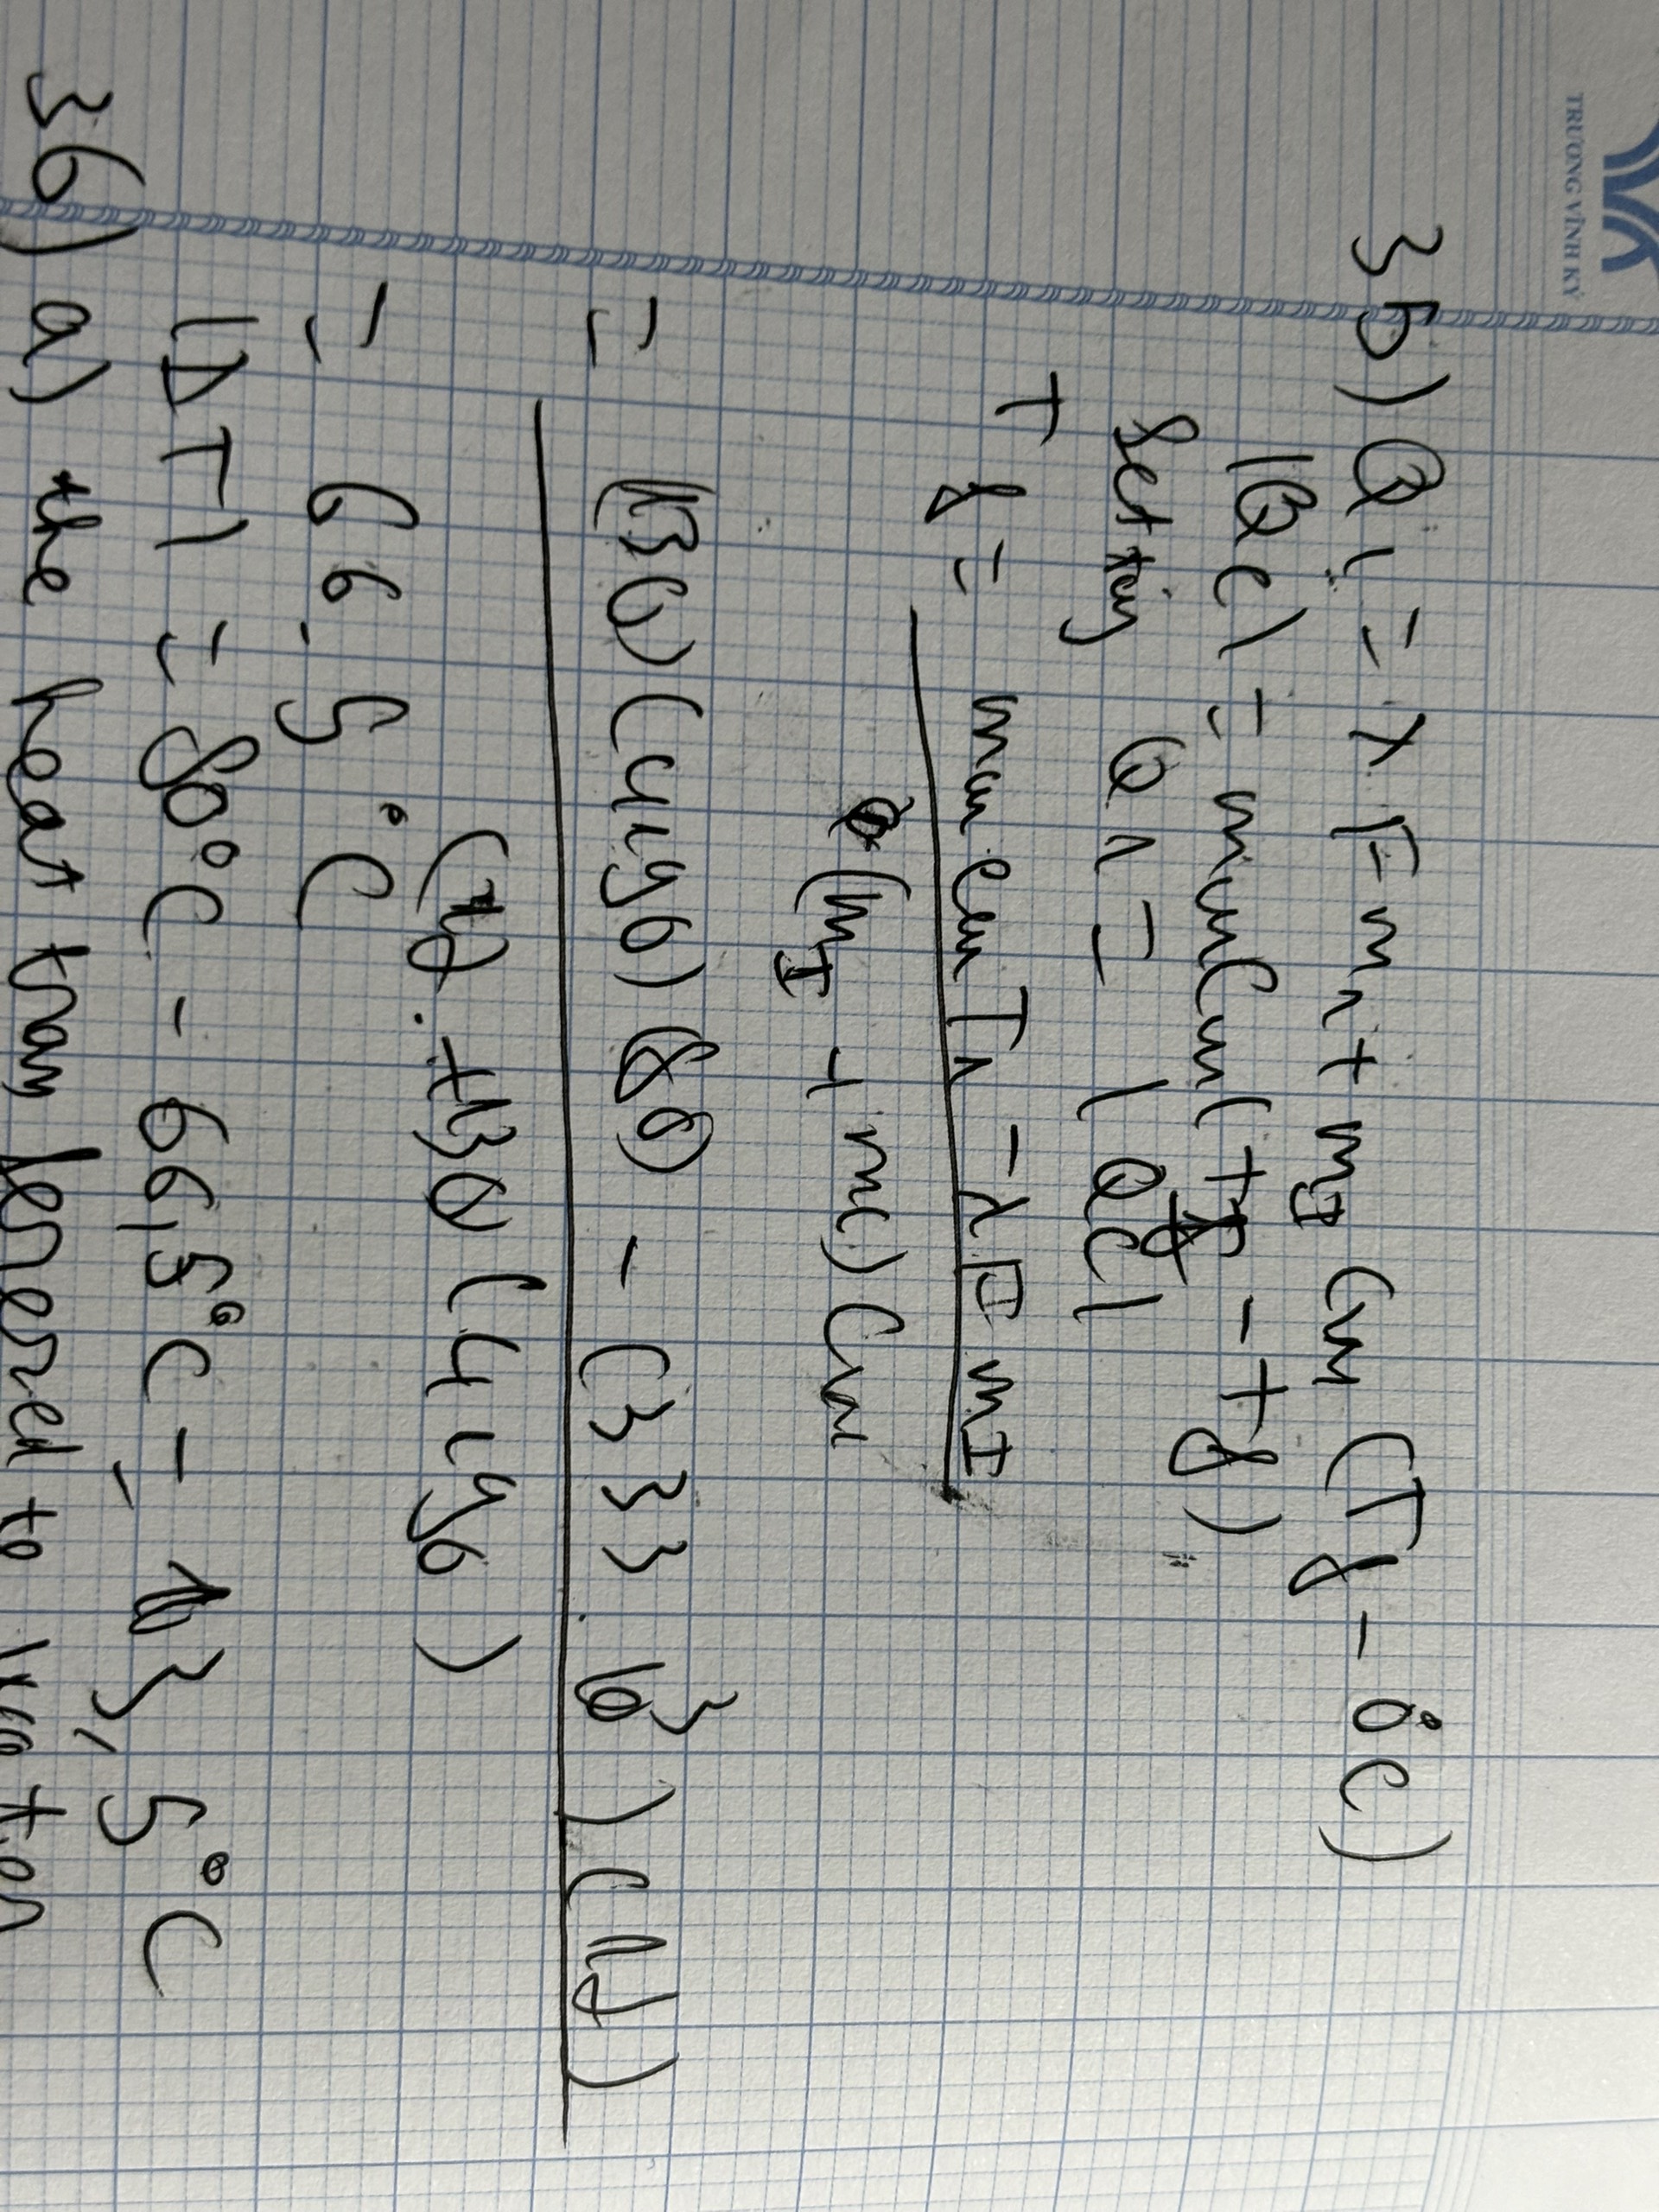 TRƯƠNG VĨNH KÝ
35) Q1 = λF m1 + mI Cw (Tf - 0°C)
|Qc| = mwCw( - Tf)
Setting Q1 = |Qc|
Tf = mw cw T1 - λF mI
(mI + mc) Cw
= (130)(4190)(80) - (333.10³)(12)
(12 + 130 (4190)
= 66.5°C
|ΔT| = 80°C - 66,5°C = 13,5°C
36) a) the heat tranferred to water